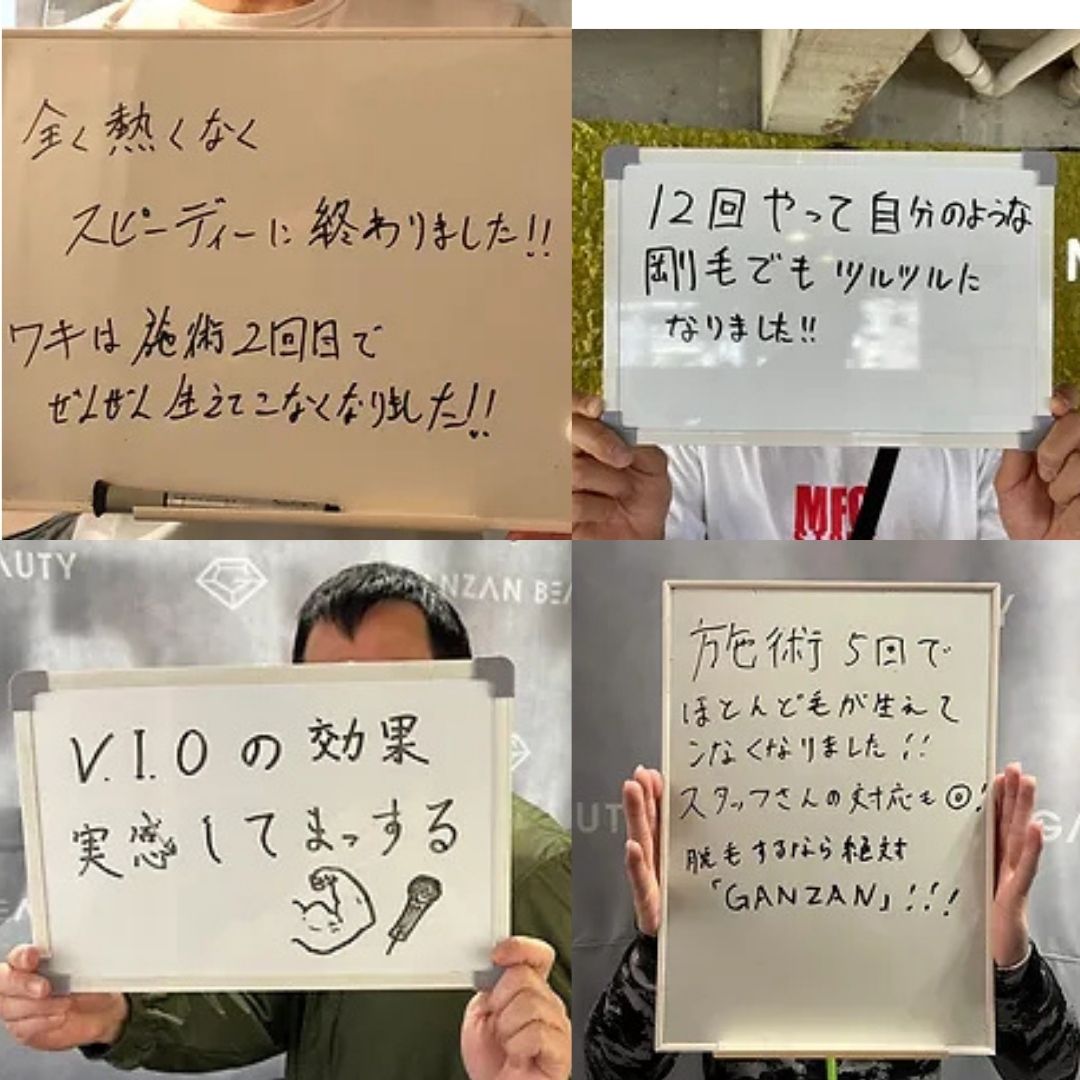 全く熱くなく
スピーディーに終わりました!!
ワキは施術2回目で
ぜんぜん生えてこなくなりました!!
12回やって自分のような
剛毛でもツルツルに
なりました!!
MFC
AUTY
GANZAN BEA
V.I.Oの効果
実感してまっする
施術5回で
ほとんど毛が生えて
こなくなりました!!
スタッフさんの対応も◎!
脱毛するなら絶対
「GANZAN」!!!